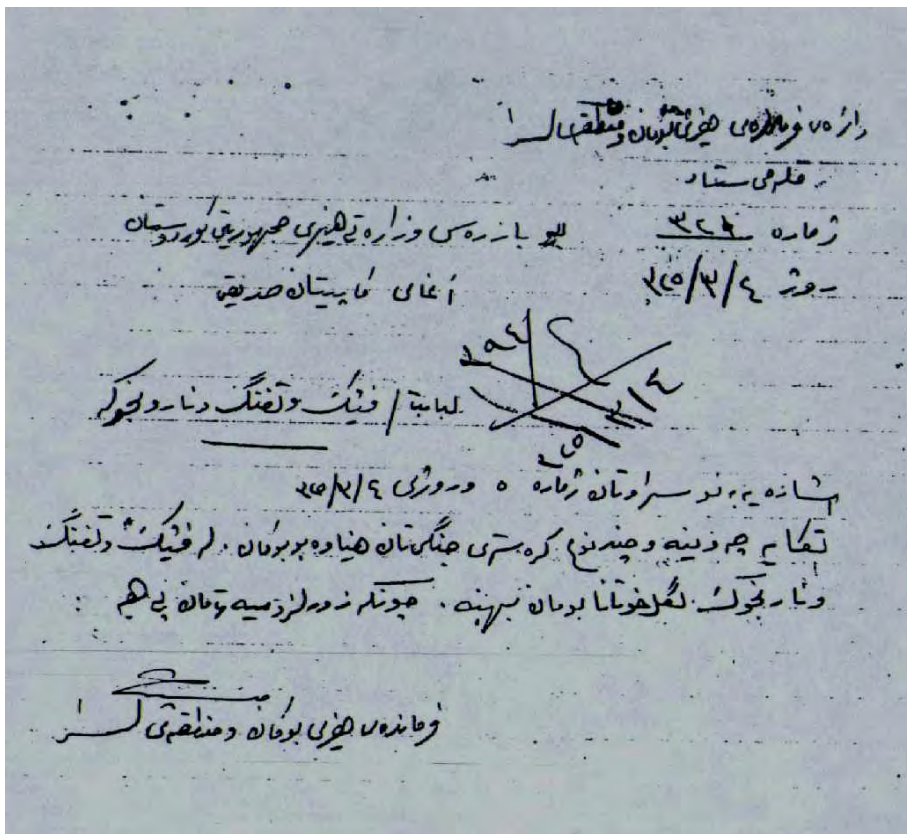 ئیداره‌ی فرمانده‌ی هێزی بوکان و منطقه‌ی سرا
قلمی ستاد
ژماره ٣٢٤ بو بازره‌سی وزاره‌تی هیزی جمهوریتی کوردوستان
روژ ٣٢٥/٣/٤ آغای کاپیتان صدیقی
١٩٤/٢
٣/٤
٣٢٥
لبابت / فیشک و تفنگ و نارنجوکه
اشاره به نوسراوتان ژماره ٥ و روژی ٣٢٥/٣/٤
تکایه چه و نوع که‌ره‌ستی جنگی‌تان هیناوه بو بوکان . له فیشک و تفنگ
و نارنجوک لگل خوتانا بومان بهینه . چونکه زور لازمیه‌تمان پی هه :
فرمانده‌ی هیزی بوکان و منطقه‌ی سرا